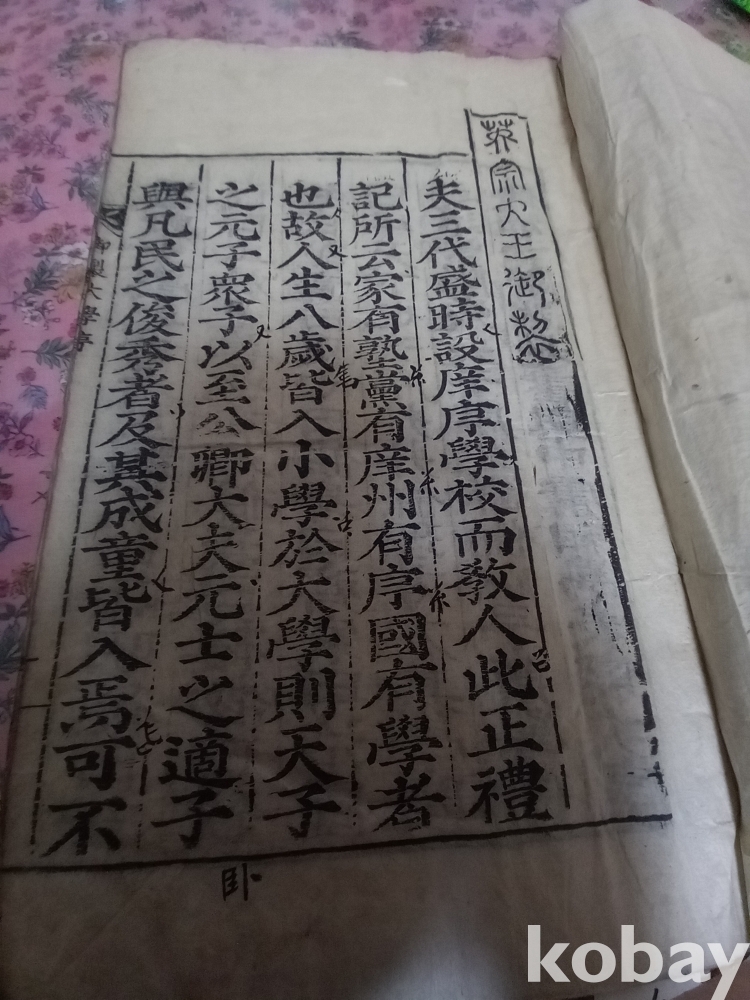 英宗大王御製
夫三代盛時設庠序學校而敎人此正禮
記所云家有塾黨有庠州有序國有學者
也故人生八歲皆入小學於大學則天子
之元子衆子以至公卿大夫元士之適子
與凡民之俊秀者及其成童皆入焉可不
御製大學序
卧
kobay